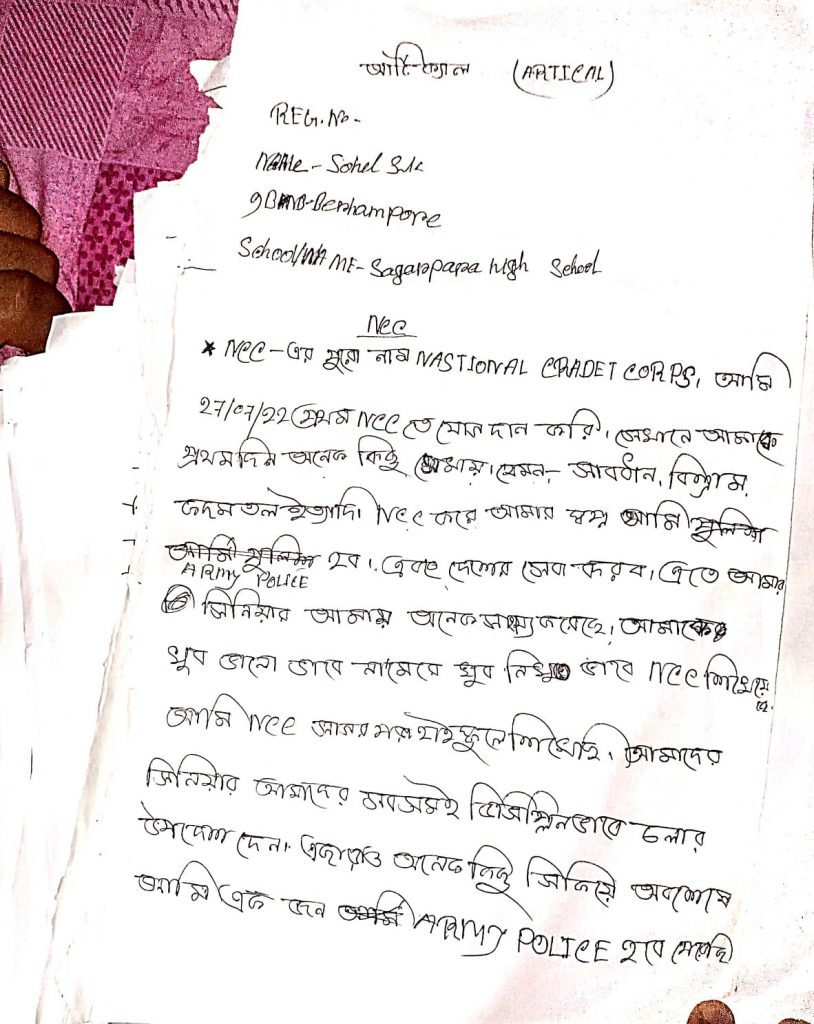 আর্টিক্যাল (ARTICAL)
REG.No-
NAMe - Sohel Sk
9 BN-Berhampore
School NAME- Sagarpara High School
NCC
* NCC-এর পুরো নাম NASTIONAL CRADET CORPS, আমি
27/07/22 প্রথম NCC তে যোগদান করি। সেখানে আমাকে
প্রথমদিন অনেক কিছু শেখায়। যেমন- সাবধান, বিশ্রাম,
কদমতাল ইত্যাদি। NCC করে আমার স্বপ্ন আমি
ARMY POLICE হব। এবং দেশের সেবা করব। এতে আমার
সিনিয়ার আমায় অনেক সাহায্য করেছে। আমাকে
খুব ভালো ভাবে খুব নিখুত ভাবে NCC শিখেয়ে
আমি NCC সাগরপাড়া হাইস্কুলে শিখেছি। আমাদের
সিনিয়ার আমাদের সবসমই ডিসিপ্লিনভাবে চলার
উপদেশ দেন। এছাড়াও অনেক কিছু অবশেষে
আমি এক জন ARMY POLICE হবে